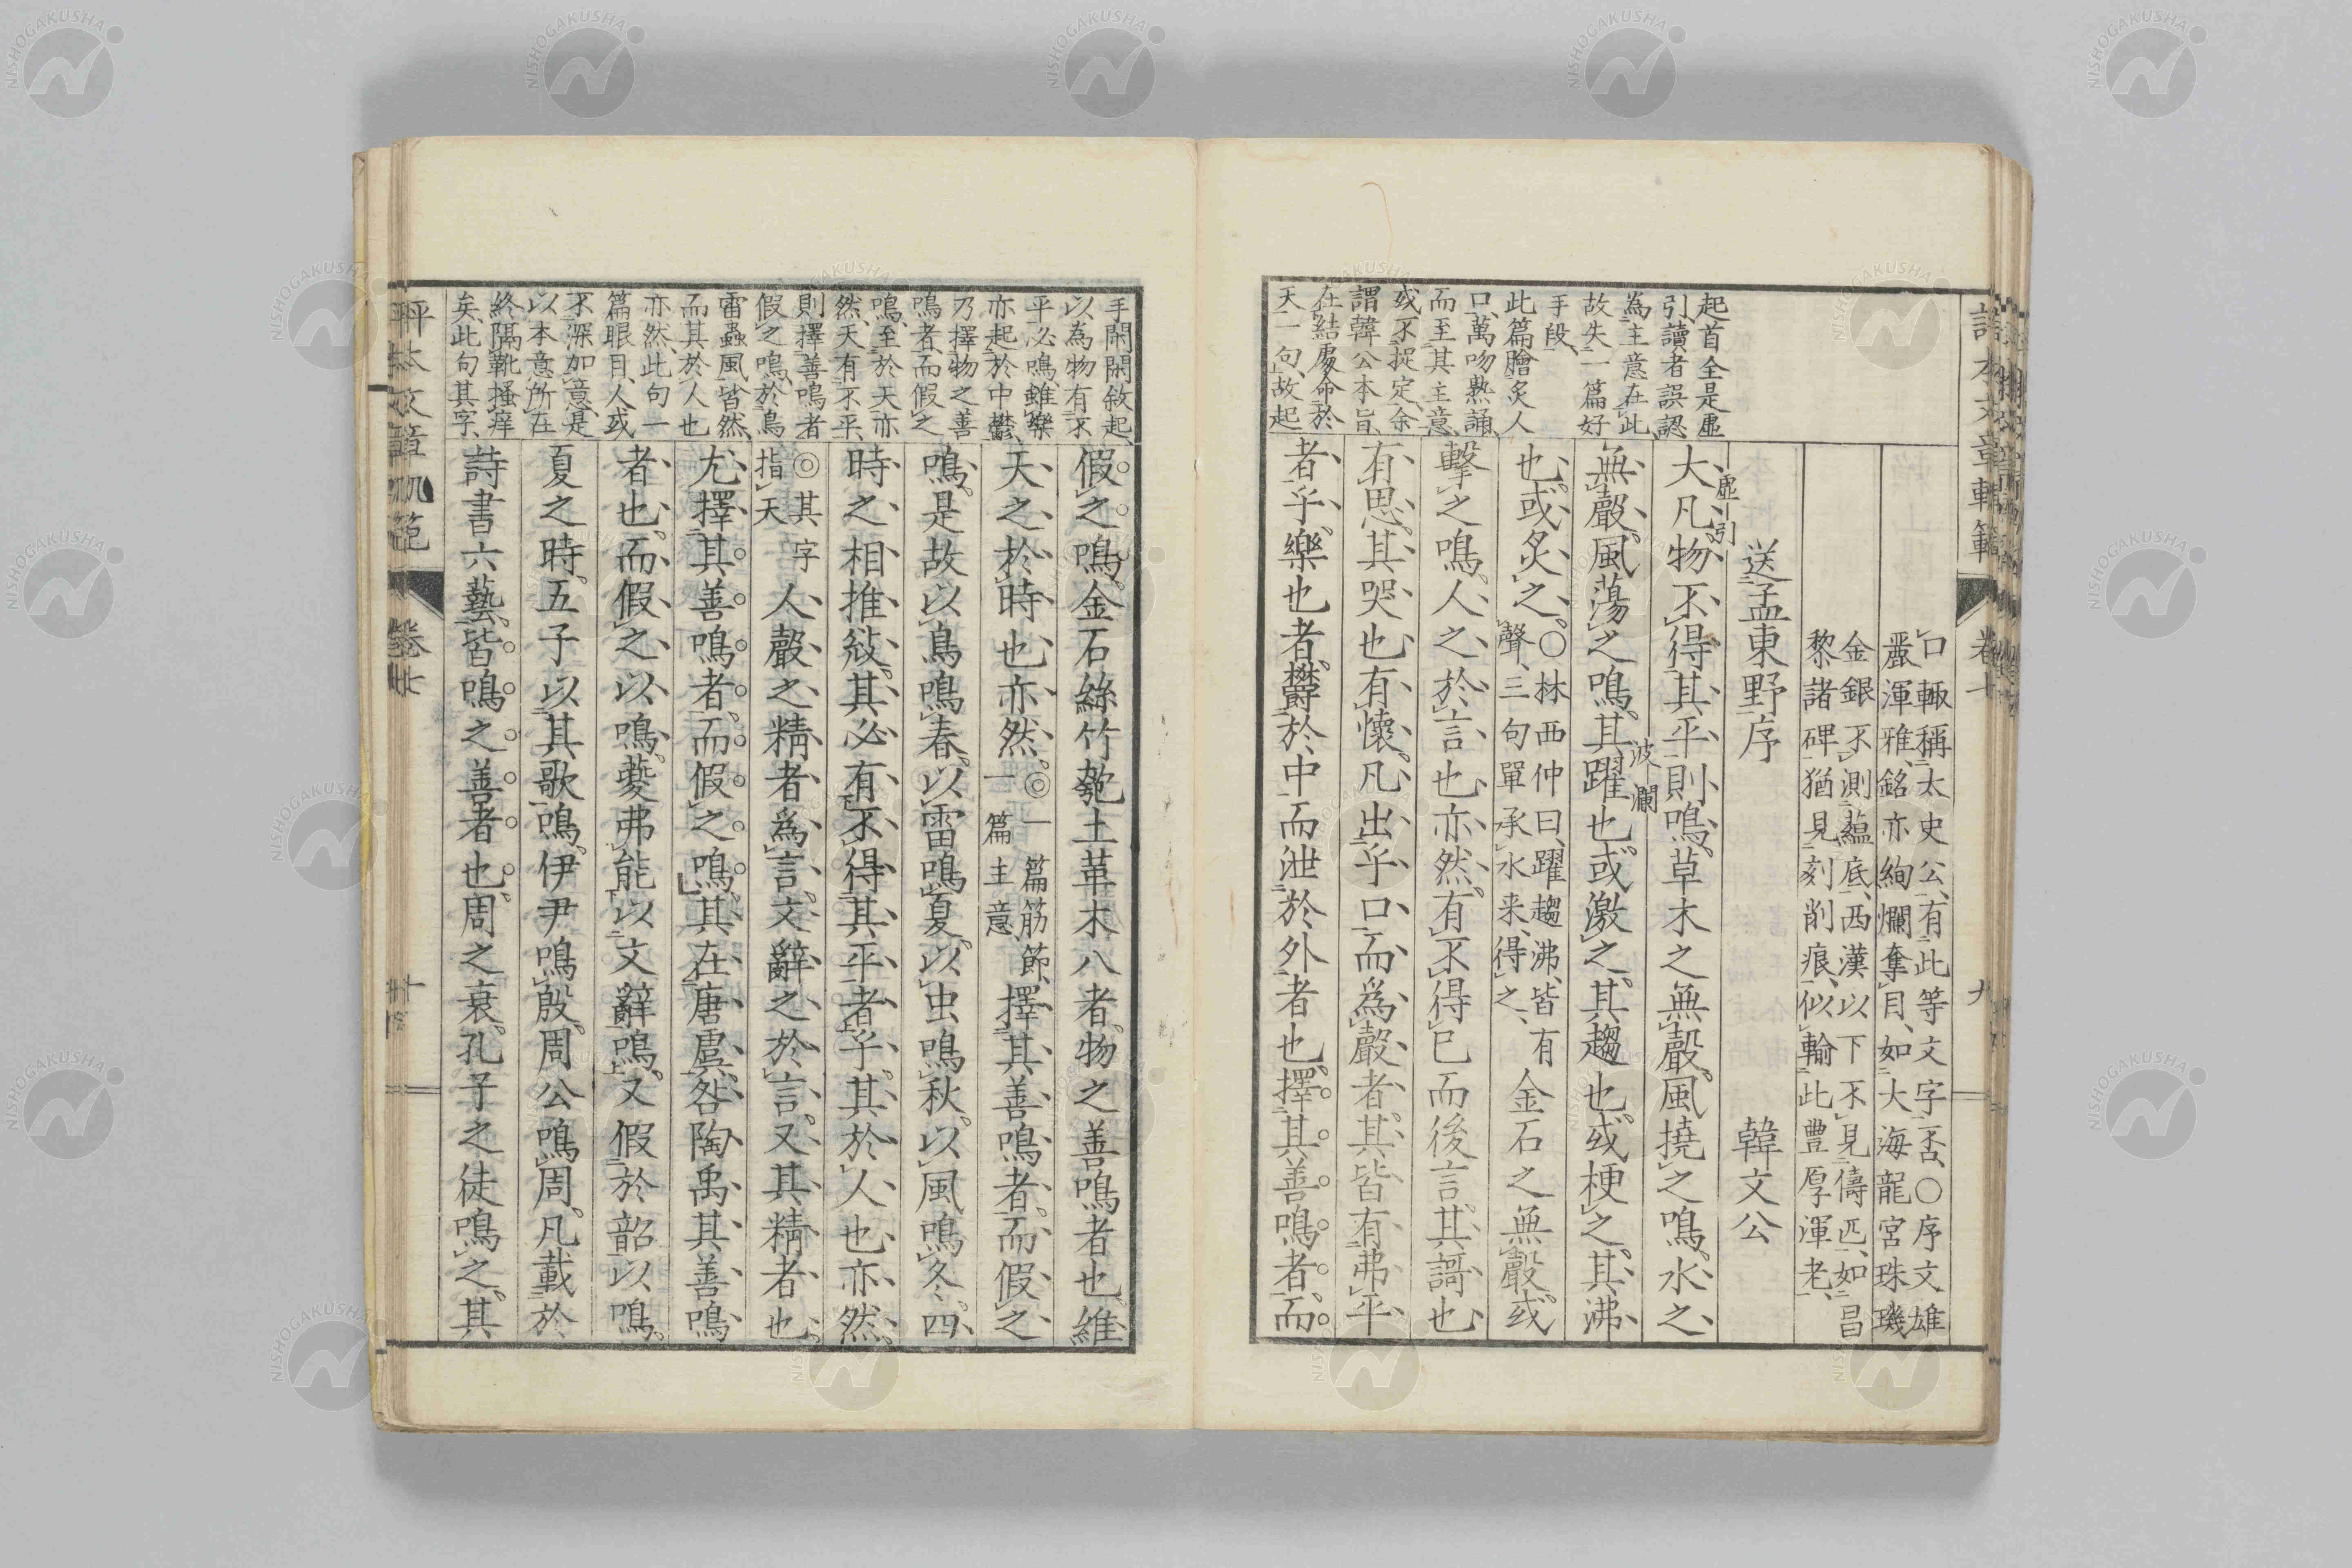 起首全是虛
引讀者誤認
為主意在此
故失一篇好
手段
此篇膾炙人
口萬吻熟誦
而至其主意
或不捉定余
謂韓公本旨
在結處命於
天一句故起
口輙稱太史公有此等文字否○序文雄
嚴渾雅銘亦絢爛奪目如大海龍宮珠璣
金銀不測蘊底西漢以下不見儔匹如昌
黎諸碑猶見刻削痕似輸此豊厚渾老
送孟東野序 韓文公
虛引
大凡物不得其平則鳴草木之無聲風撓之鳴水之
無聲風蕩之鳴其躍也或激之其趨也或梗之其沸
波瀾
也或炙之○林西仲曰躍趨沸皆有
聲三句單承水来得之金石之無聲或
擊之鳴人之於言也亦然有不得已而後言其謌也
有思其哭也有懷凡出乎口而為聲者其皆有弗平
者乎樂也者欝於中而泄於外者也擇其善鳴者而
卷七
九
手閑閑敘起
以為物有不
平必鳴雖樂
亦起於中鬱
乃擇物之善
鳴者而假之
鳴至於天亦
然天有不平
則擇善鳴者
假之鳴於鳥
雷蟲風皆然
而其於人也
亦然此句一
篇眼目人或
不深加意是
以本意所在
終隔靴搔痒
矣此句其字
假之鳴金石絲竹匏土革木八者物之善鳴者也維
天之於時也亦然◎一篇筋節
一篇主意擇其善鳴者而假之
鳴是故以鳥鳴春以雷鳴夏以虫鳴秋以風鳴冬四
時之相推敚其必有不得其平者乎其於人也亦然
◎其字
指天人聲之精者為言文辭之於言又其精者也
尤擇其善鳴者而假之鳴其在唐虞咎陶禹其善鳴
者也而假之以鳴夔弗能以文辭鳴又假於韶以鳴
夏之時五子以其歌鳴伊尹鳴殷周公鳴周凡載於
詩書六藝皆鳴之善者也周之衰孔子之徒鳴之其